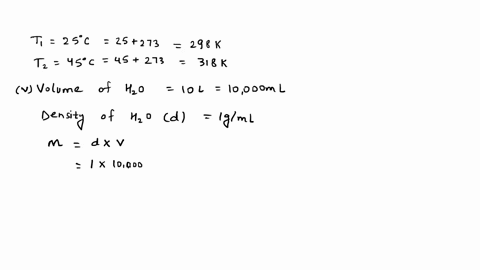 T₁ = 25°C = 25 + 273 = 298 K
T₂ = 45°C = 45 + 273 = 318 K
(V) Volume of H₂O = 10 L = 10,000 mL
Density of H₂O (d) = 1g/mL
m = d x V
= 1 x 10,000